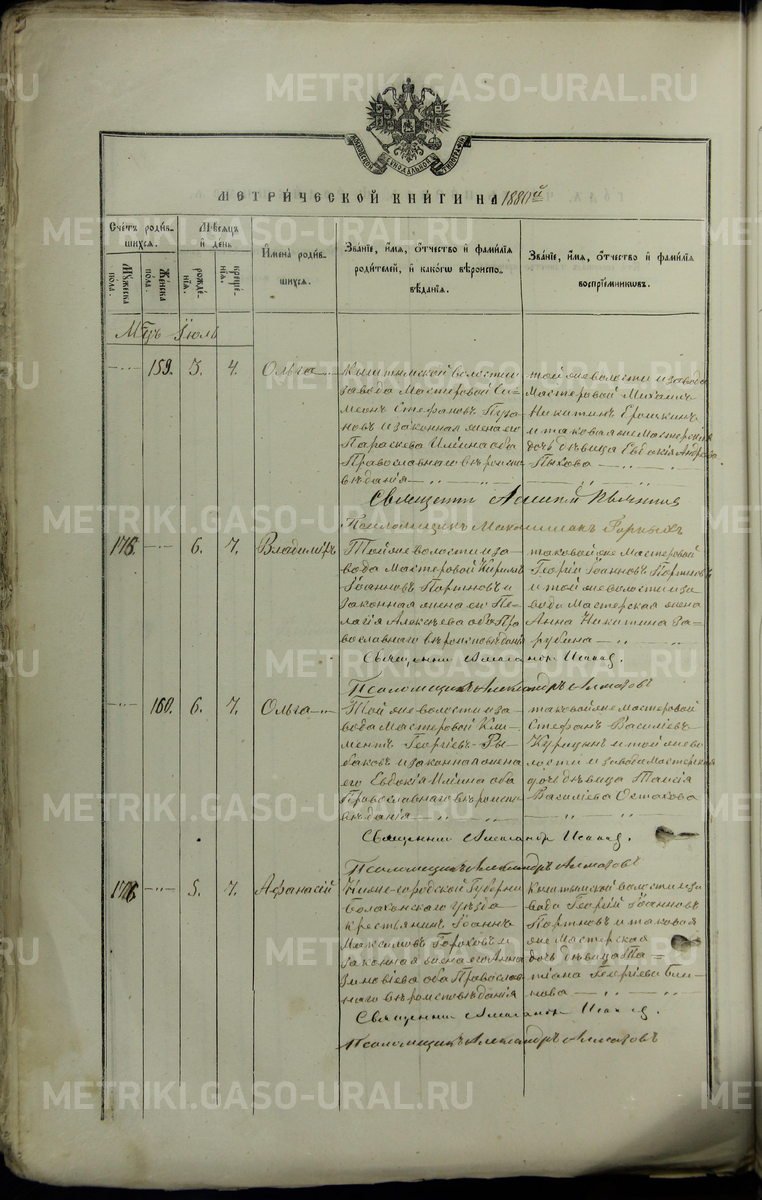 METRIKI.GASO-URAL.RU
МОСКОВСКОЙ СѴНОДАЛЬНОЙ ТИПОГРАФІИ
МЕТРИ́ЧЕСКОЙ КНИ́ГИ НА 1880й
Сче́тъ роди́вшихся.
Му́жеска пола.
Же́нска пола.
Мѣ́сяцъ и́ день
рожде́нїя.
креще́нїя.
И҆мена̀ роди́вшихся.
Зва́нїе, и҆́мя, о҆́тчество и҆ фами́лїя
роди́телей, и҆ како́гѡ вѣроисповѣ́данїя.
Зва́нїе, и҆́мя, о҆́тчество и҆ фами́лїя
воспрїе́мникѡвъ.
Мцъ Іюль
159. 3. 4. Ольга
Кыштымской волости и
завода Мастеровой Си-
меонъ Стефановъ
и законная жена его
Параскева Илiина оба
Православнаго вѣроиспо-
вѣдания
той же волости и завода
Мастеровой Михаилъ
Никитинъ Ерошкинъ
и таковая же Мастерская
дочь дѣвица Евдокія Андреева
Пыхова
Священникъ
Псаломщикъ
175. 6. 7. Владиміръ
Той же волости и за-
вода Мастеровой Кирилъ
Іоанновъ Портновъ и
законная жена его Пе-
лагія Алексѣева оба Пра-
вославнаго вѣроисповѣданія
таковой же Мастеровой
Георгій Іоанновъ Портновъ
и той же волости и за-
вода Мастерская жена
Анна Никитина За-
рубина
Священник
Псаломщикъ Александръ Алмазовъ
160. 6. 7. Ольга
Той же волости и за-
вода Мастеровой Кли-
ментъ Георгіевъ Ры-
баковъ и законная жена
его Евдокія Илiина оба
Православнаго вѣроиспо-
вѣданія
таковой же Мастеровой
Стефанъ Василіевъ
Курицынъ и той же во-
лости и завода Мастерская
дочь дѣвица Таисія
Василіева
Священник
Псаломщикъ Александръ Алмазовъ
176. 5. 7. Афанасій
Нижегородской Губерніи
Балахонскаго Уѣзда
крестьянинъ Іоаннъ
Максимовъ Гороховъ и
законная жена его Анна
Зиновіева оба Православ-
наго вѣроисповѣданія
Кыштымской волости и за-
вода Георгій Іоанновъ
Портновъ и таковая
же Мастерская
дочь дѣвица Та-
тіана Георгіева Бли-
нова
Священник
Псаломщикъ Александръ Алмазовъ